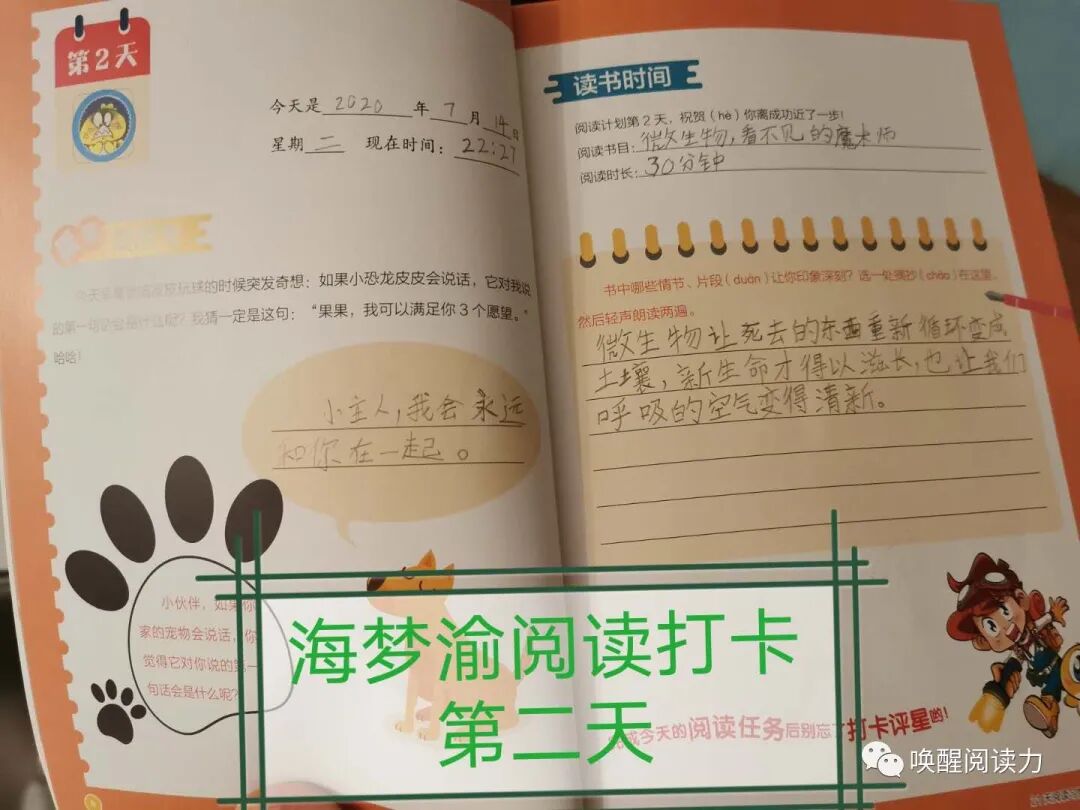 第2天
今天是 2020 年 7 月 14 日
星期 二 现在时间: 22:27
玩球的时候突发奇想:如果小恐龙皮皮会说话,它对我说
的第一句话会是什么呢?我猜一定是这句:“果果,我可以满足你3个愿望。”
哈哈!
小主人,我会永远
和你在一起。
小伙伴,如果你
家的宠物会说话,你
觉得它对你说的第一
句话会是什么呢?
读书时间
阅读计划第2天,祝贺(hè)你离成功近了一步!
阅读书目:微生物,看不见的魔术师
阅读时长:30分钟
书中哪些情节、片段(duàn)让你印象深刻?选一处摘抄(chāo)在这里,
然后轻声朗读两遍。
微生物让死去的东西重新循环变成
土壤,新生命才得以滋长,也让我们
呼吸的空气变得清新。
海梦渝阅读打卡
第二天
成今天的阅读任务后别忘了打卡评星哟!
唤醒阅读力